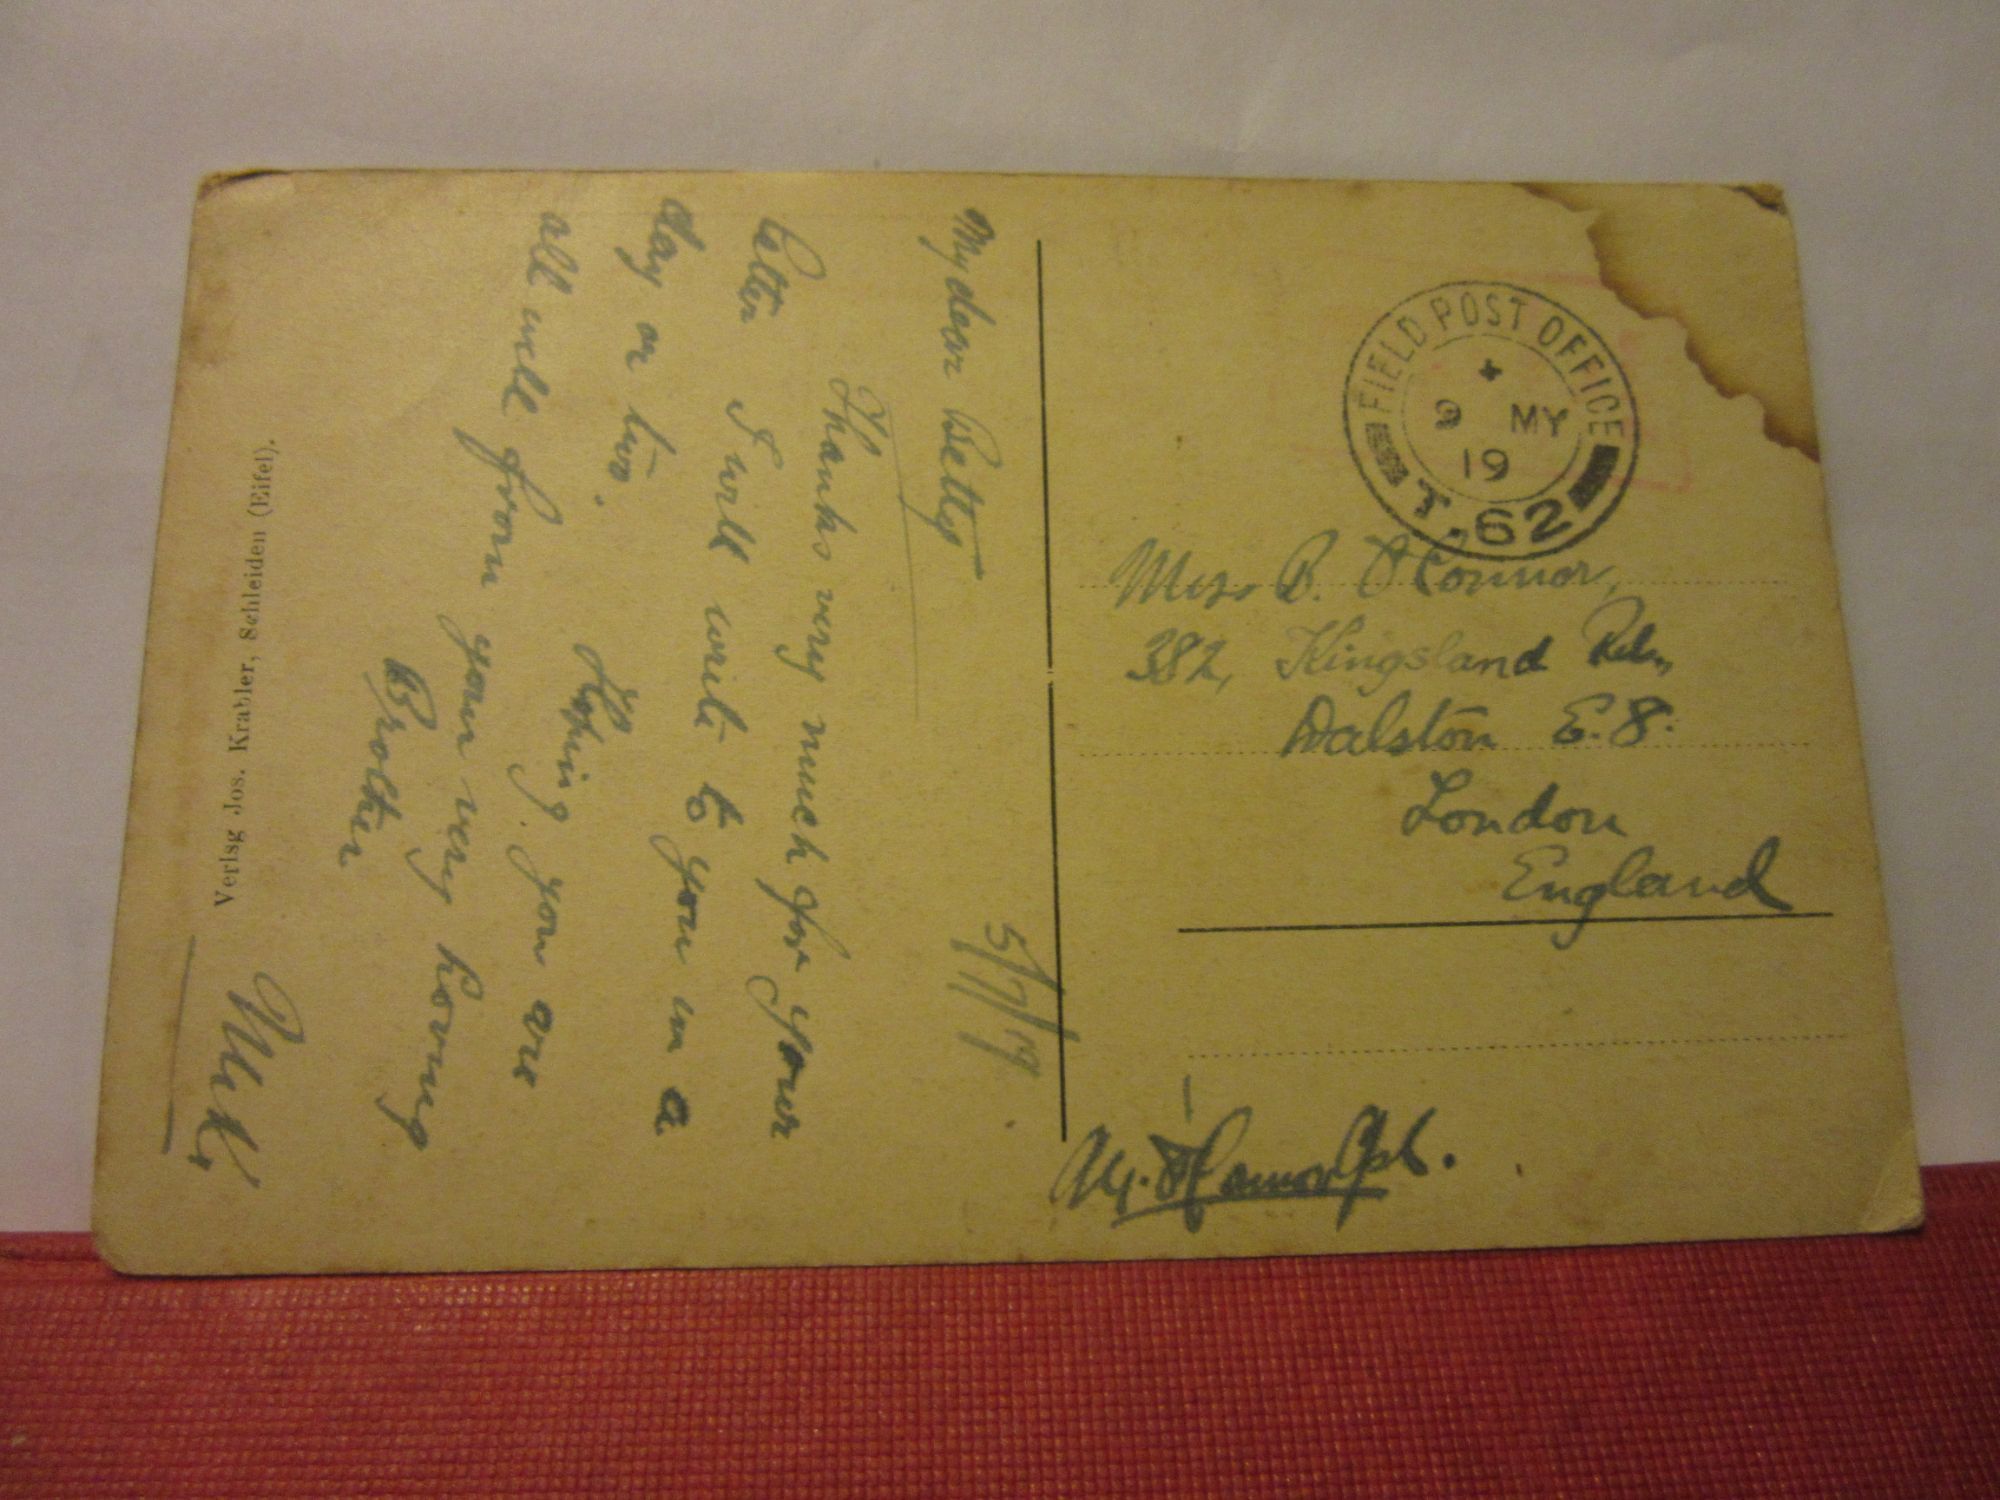 5/7/19
My dear Betty
Thanks very much for your
letter I will write to you in a
day or two. Hoping you are
all well from your very loving
Brother
Verlsg Jos. Krabler, Schleiden (Eifel).
FIELD POST OFFICE
9 MY
19
T.62
Miss B. O'Connor,
382, Kingsland Rd.,
Dalston E.8.
London
England